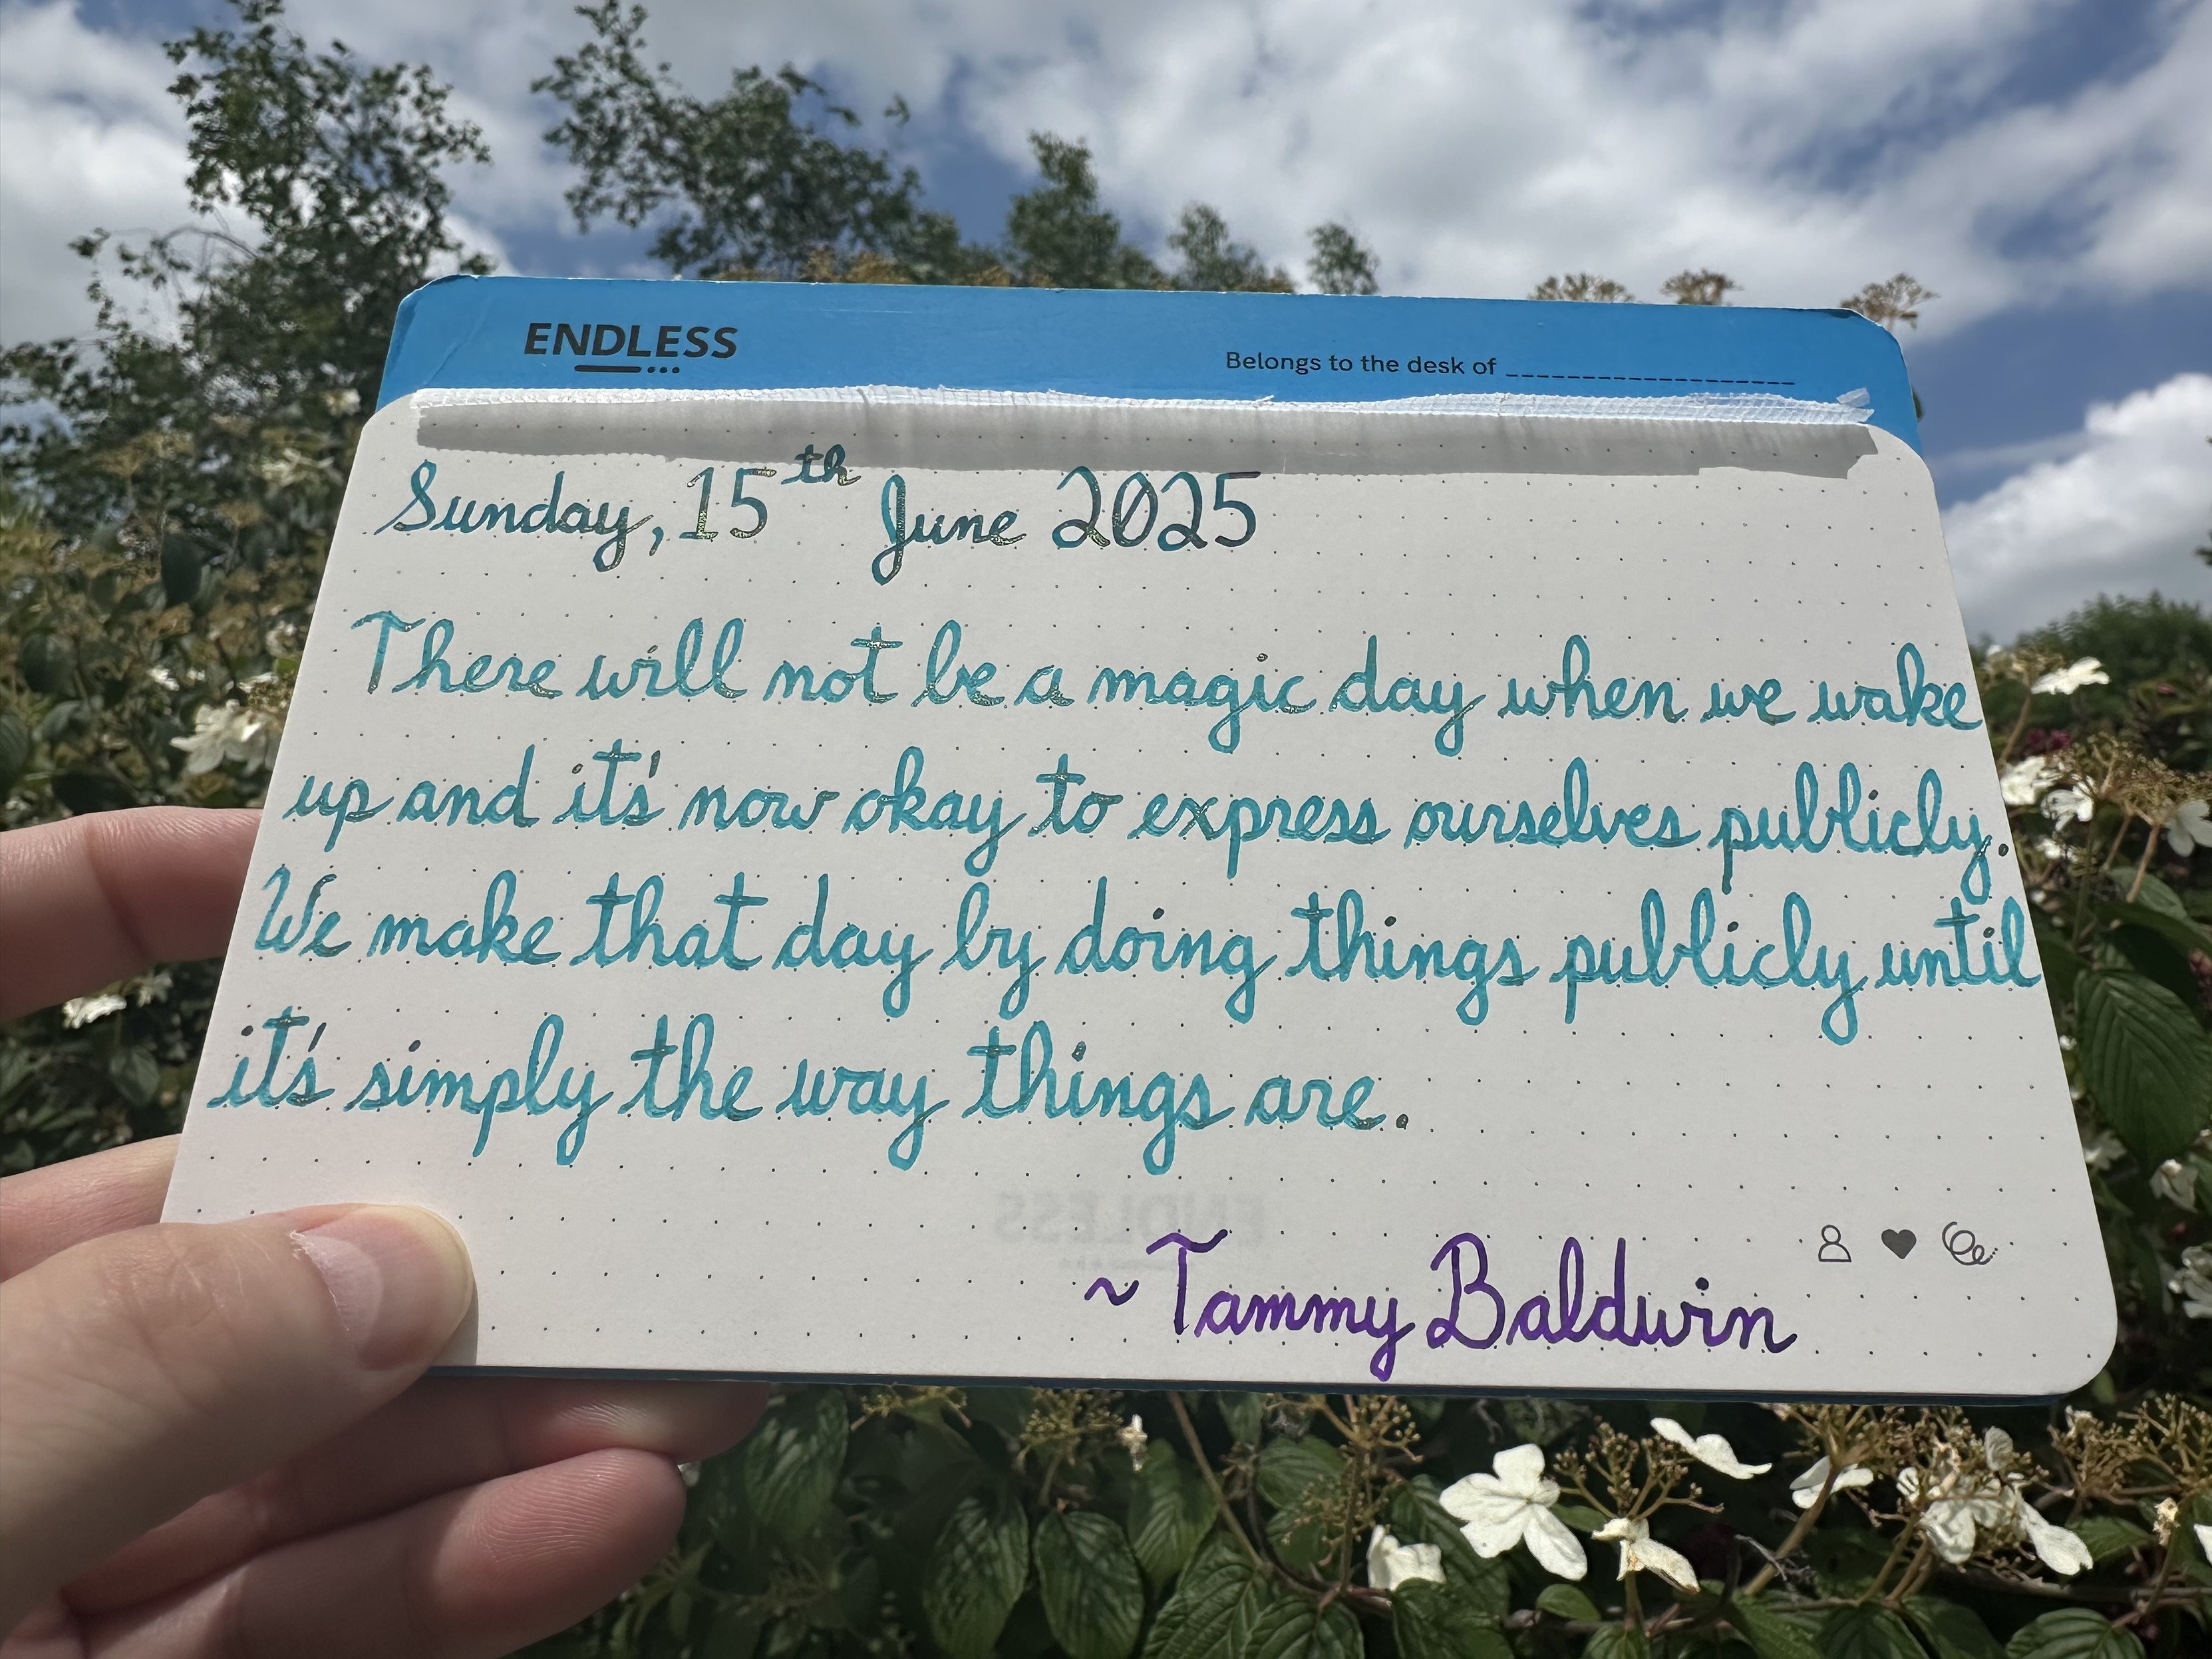 ENDLESS
Belongs to the desk of
Sunday, 15th June 2025
There will not be a magic day when we wake
up and it's now okay to express ourselves publicly.
We make that day by doing things publicly until
it's simply the way things are.
ENDLESS
~Tammy Baldwin